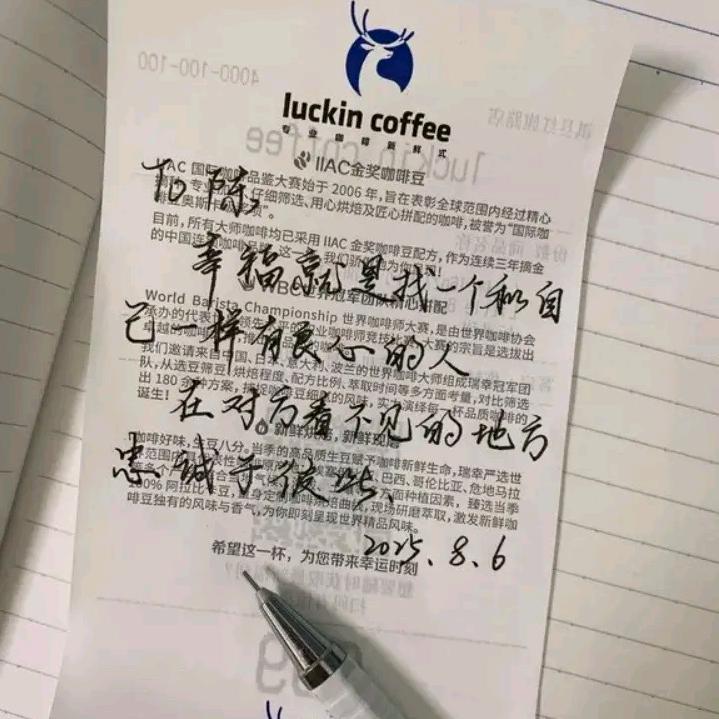 luckin coffee
专业咖啡新鲜式
IIAC金奖咖啡豆
IIAC 国际咖啡品鉴大赛始于 2006 年,旨在表彰全球范围内经过精心
仔细筛选、用心烘焙及匠心拼配的咖啡,被誉为“国际咖
啡奥斯卡
TO 陈:
目前,所有大师咖啡均已采用 IIAC 金奖咖啡豆配方,作为连续三年摘金
的中国连锁咖啡品牌,这一
幸福就是找一个和自
WBC 世界冠军团队精心拼配
World Barista Championship 世界咖啡师大赛,是由世界咖啡协会
承办的代表
咖啡师竞技比赛,大赛的宗旨是选拔出
卓越的咖啡
己一样有良心的人
我们邀请来自中国、日本、意大利、波兰的世界咖啡大师组成瑞幸冠军团
队,从选豆筛豆、烘焙程度、配方比例、萃取时间等多方面考量,对比筛选
出 180 余种方案,捕捉咖啡豆细腻的风味,实力演绎每一杯品质咖啡的
诞生!
在对方看不见的地方
新鲜烘焙,新鲜现磨
咖啡好味,生豆八分。当季的高品质生豆赋予咖啡新鲜生命,瑞幸严选世
界范围内
巴西、哥伦比亚、危地马拉
等多个产
面种植因素,臻选当季
忠诚于彼此、
100% 阿拉比卡豆,量身定
烘焙曲线,现场研磨萃取,激发新鲜咖
啡豆独有的风味与香气,为你即刻呈现世界精品风味。
2025、8、6
希望这一杯,为您带来幸运时刻
4000-100-100
淇县红旗路店
luckin coffee